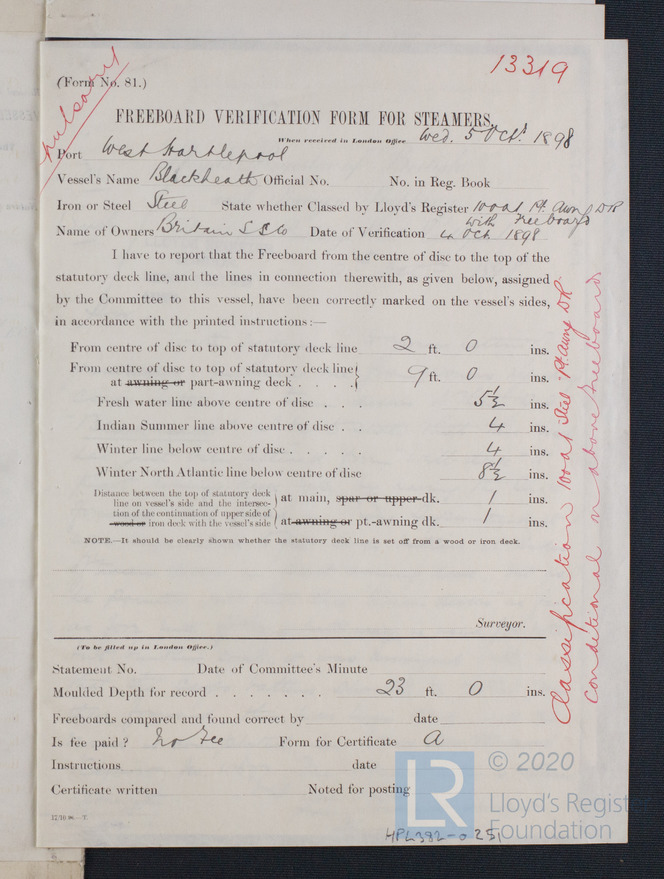 13319
(Form No. 81.)
FREEBOARD VERIFICATION FORM FOR STEAMERS.
When received in London Office Wed. 5 Oct. 1898
Port West Hartlepool
Vessel's Name Blackheath Official No. No. in Reg. Book
Iron or Steel Steel State whether Classed by Lloyd's Register 100a1 Pt. Awng DR
with freeboard
Name of Owners Britain S S Co Date of Verification 4 Oct. 1898
I have to report that the Freeboard from the centre of disc to the top of the
statutory deck line, and the lines in connection therewith, as given below, assigned
by the Committee to this vessel, have been correctly marked on the vessel's sides,
in accordance with the printed instructions:—
From centre of disc to top of statutory deck line 2 ft. 0 ins.
From centre of disc to top of statutory deck line
at awning or part-awning deck . . . . 9 ft. 0 ins.
Fresh water line above centre of disc . . . 5½ ins.
Indian Summer line above centre of disc . . 4 ins.
Winter line below centre of disc . . . . . 4 ins.
Winter North Atlantic line below centre of disc 8½ ins.
Distance between the top of statutory deck
line on vessel's side and the intersec-
tion of the continuation of upper side of
wood or iron deck with the vessel's side
at main, spar or upper-dk. 1 ins.
at awning or pt.-awning dk. 1 ins.
NOTE.—It should be clearly shown whether the statutory deck line is set off from a wood or iron deck.
Surveyor.
(To be filled up in London Office.)
Statement No. Date of Committee's Minute
Moulded Depth for record . . . . . . . 23 ft. 0 ins.
Freeboards compared and found correct by date
Is fee paid? No Fee Form for Certificate A
Instructions date
Certificate written Noted for posting
Classification 100a1 Steel Pt. Awng DR
conditional on above freeboards
HPL382-0251
LR
© 2020
Lloyd's Register
Foundation